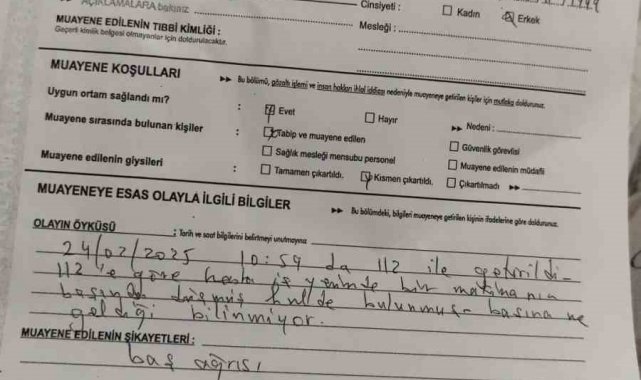 AÇIKLAMALARA bakınız
Cinsiyeti : Kadın Erkek
MUAYENE EDİLENİN TIBBİ KİMLİĞİ :
Geçerli kimlik belgesi olmayanlar için doldurulacaktır.
Mesleği :
MUAYENE KOŞULLARI
Bu bölümü, gözaltı işlemi ve insan hakları ihlal iddiası nedeniyle muayeneye getirilen kişiler için mutlaka doldurunuz.
Uygun ortam sağlandı mı? : Evet Hayır Nedeni :
Muayene sırasında bulunan kişiler : Tabip ve muayene edilen Güvenlik görevlisi
Sağlık mesleği mensubu personel Muayene edilenin müdafii
Muayene edilenin giysileri : Tamamen çıkartıldı. Kısmen çıkartıldı. Çıkartılmadı
MUAYENEYE ESAS OLAYLA İLGİLİ BİLGİLER
Bu bölümdeki, bilgileri muayeneye getirilen kişinin ifadelerine göre doldurunuz.
OLAYIN ÖYKÜSÜ : Tarih ve saat bilgilerini belirtmeyi unutmayınız
24/02/2025 10:59 da 112 ile getirildi-
112'ye göre hasta iş yerinde bir makinanın
başında düşmüş halde bulunmuş- başına ne
geldiği bilinmiyor.
MUAYENE EDİLENİN ŞİKAYETLERİ :
baş ağrısı